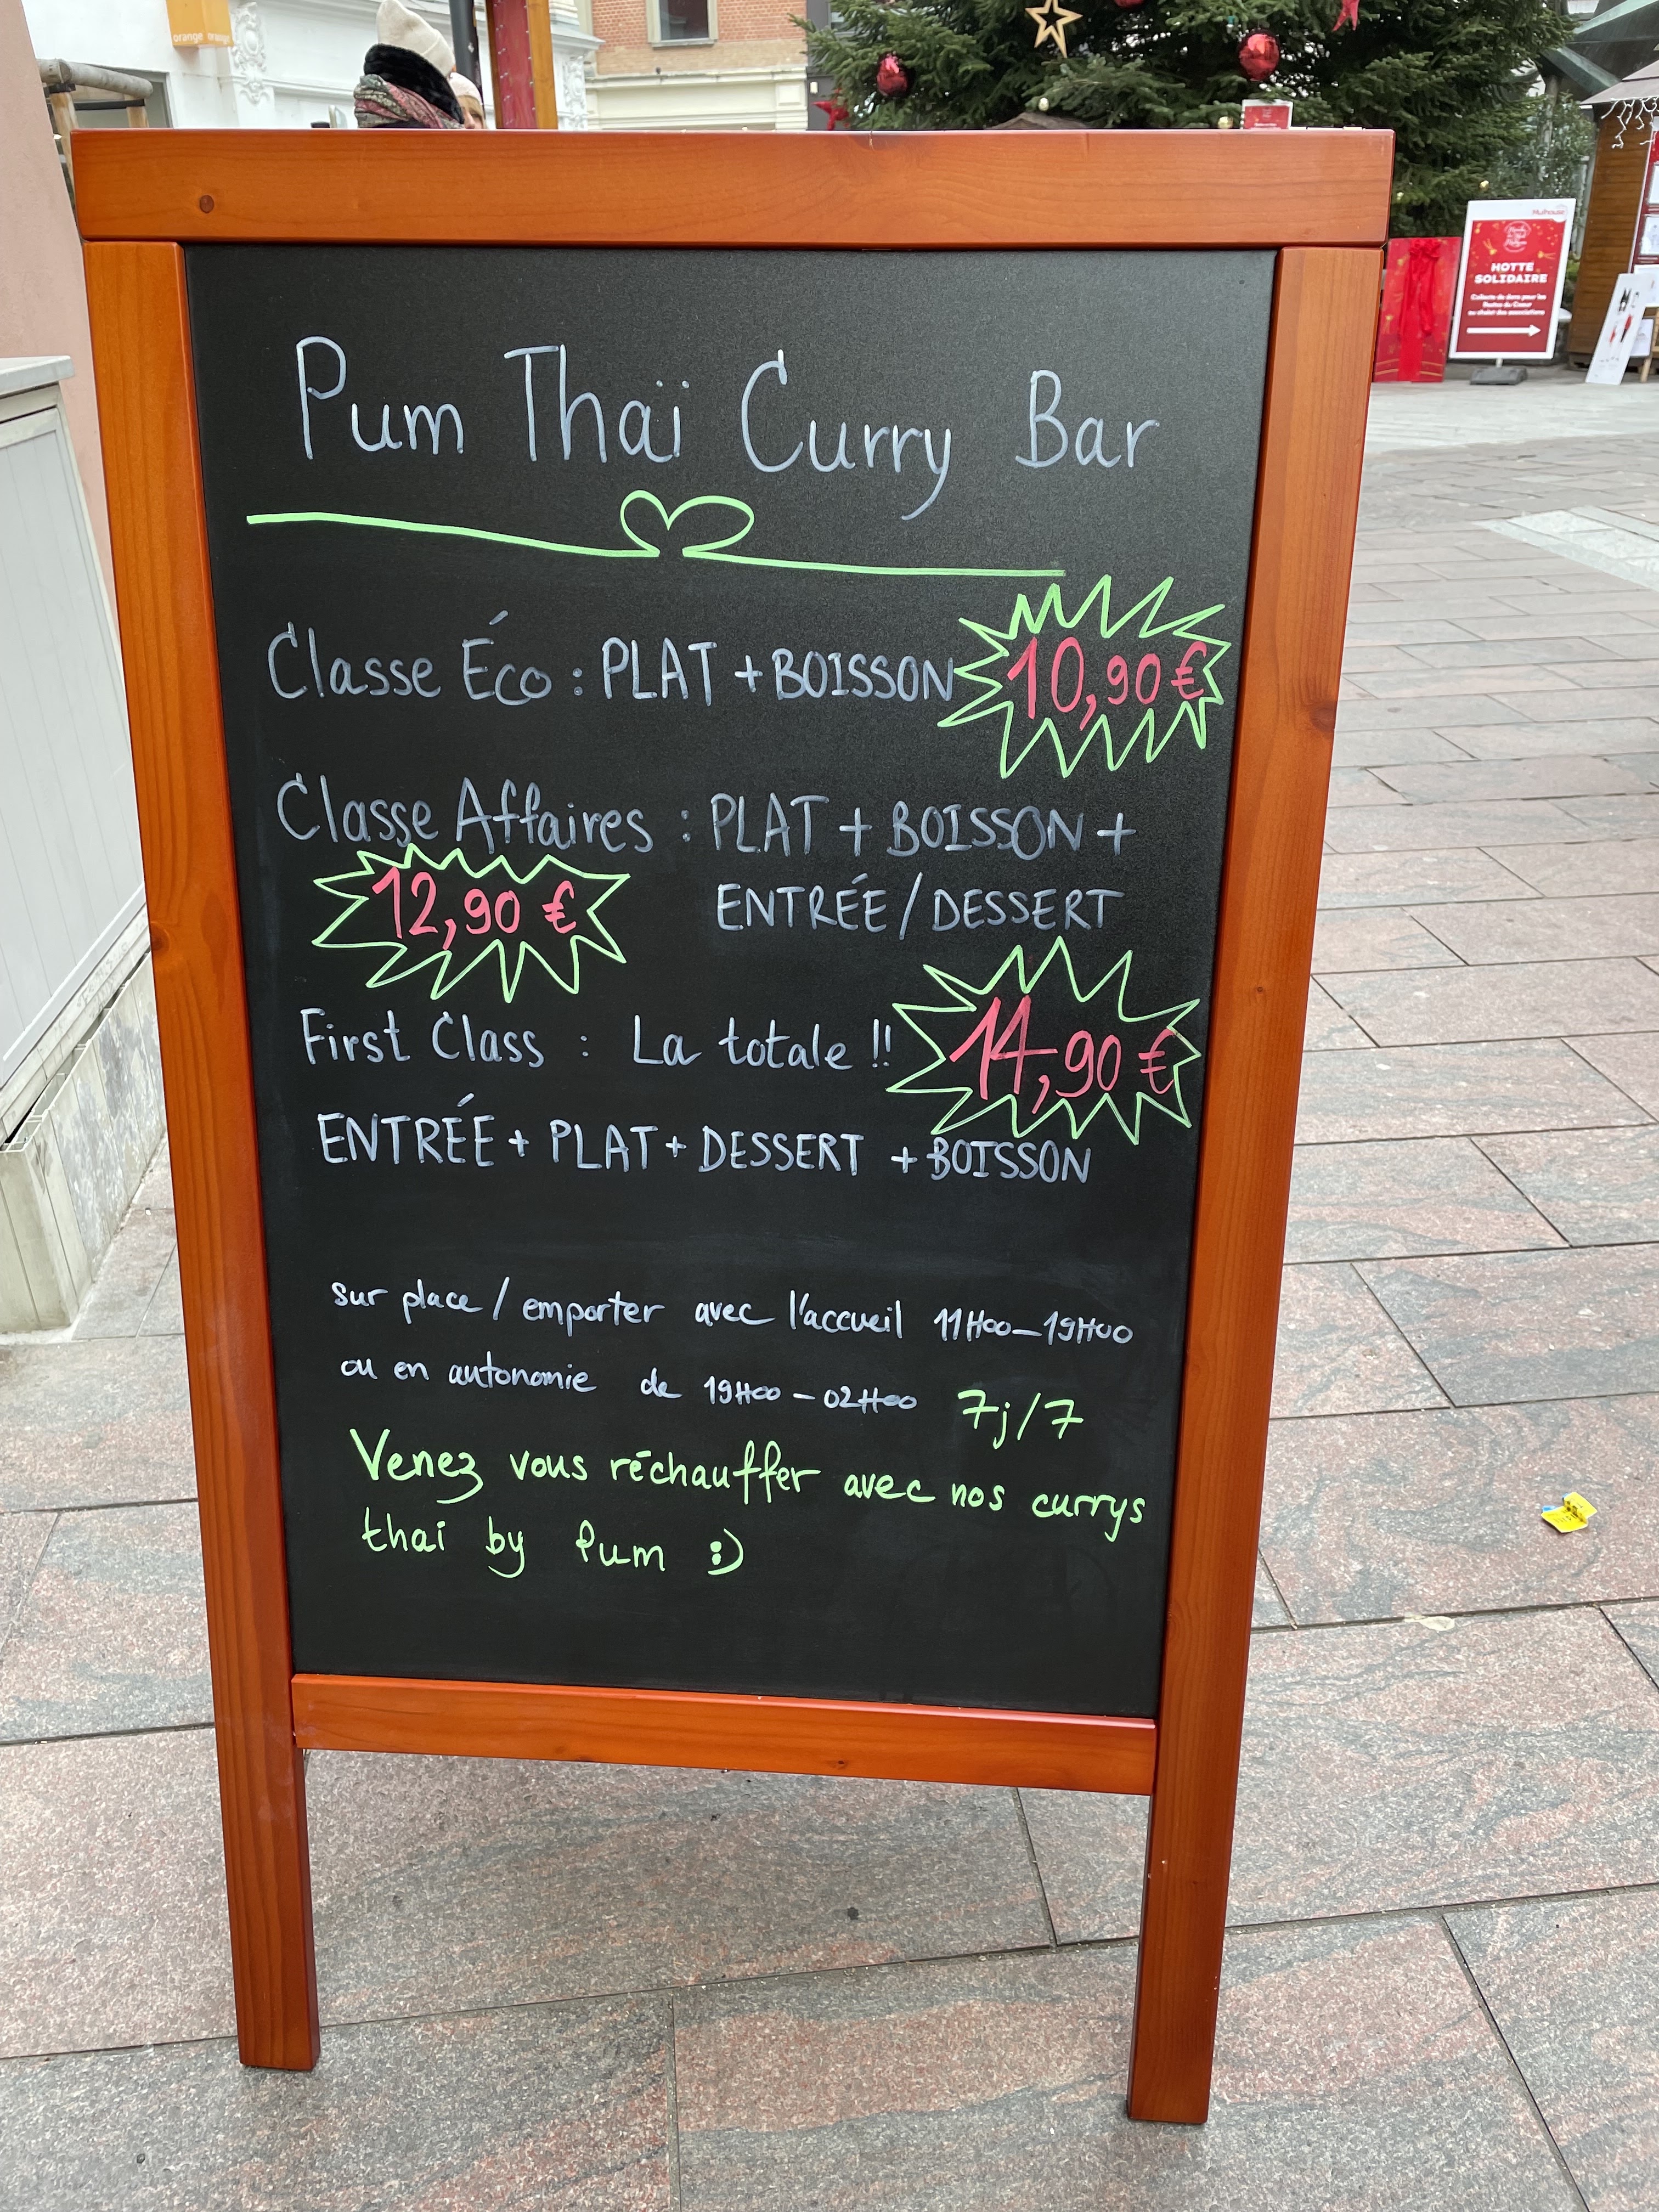 orange
Mulhouse
HOTTE
SOLIDAIRE
Collecte de dons pour les
Restos du Coeur
au chalet des associations
Pum Thaï Curry Bar
Classe Éco : PLAT + BOISSON 10,90 €
Classe Affaires : PLAT + BOISSON +
12,90 € ENTRÉE / DESSERT
First Class : La totale !! 14,90 €
ENTRÉE + PLAT + DESSERT + BOISSON
sur place / emporter avec l'accueil 11H00 - 19H00
ou en autonomie de 19H00 - 02H00 7j/7
Venez vous réchauffer avec nos currys
thai by Pum :)